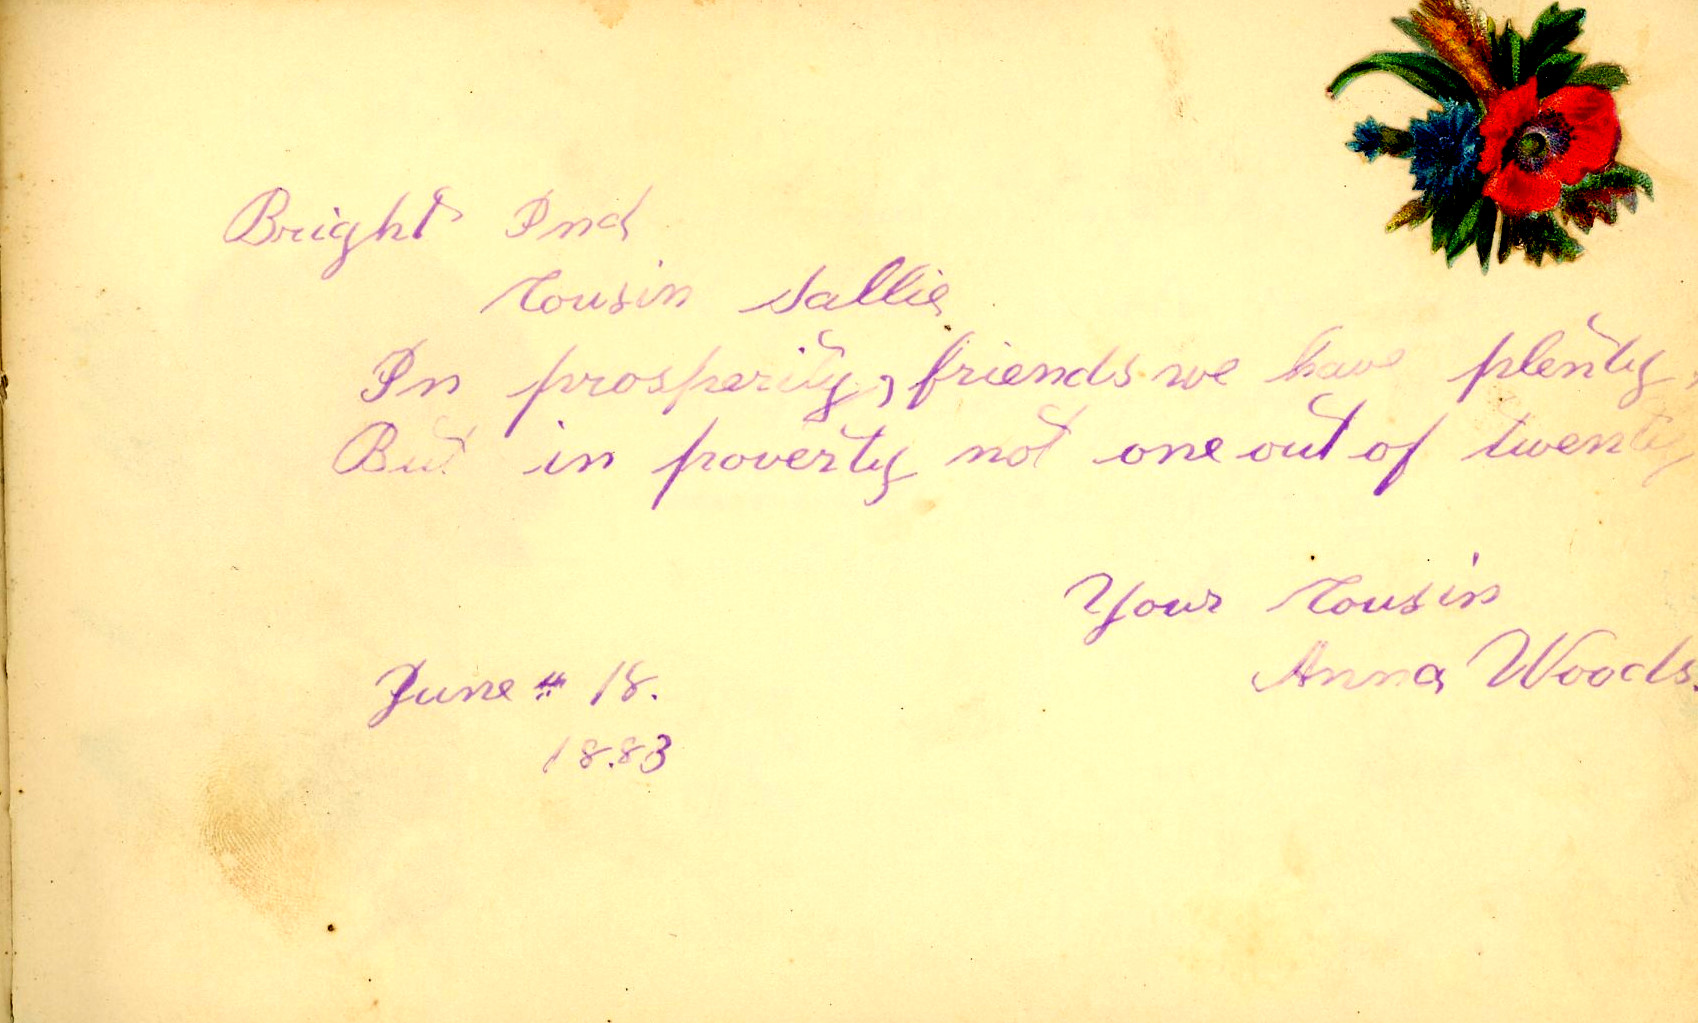 Bright Ind
Cousin Sallie
In prosperity, friends we have plenty,
But in poverty not one out of twenty
Your Cousin
Anna Woods.
June " 18.
18.83